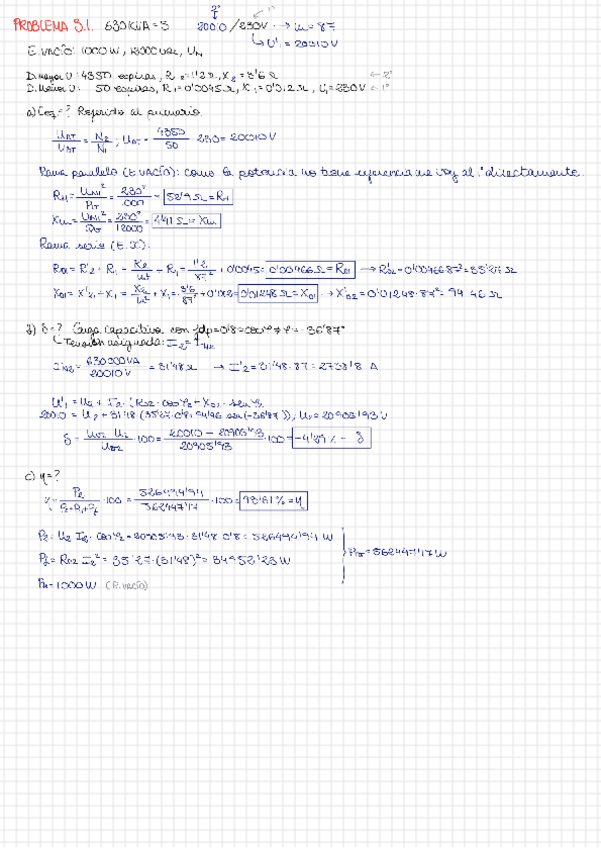 PROBLEMA 3.1. 630KVA = S 20010/230V → m = 87
2º 1º
↳ U'1 = 20010V
E. VACÍO: 1000W, 12000VAr, UN
D. mayor U: 4350 espiras, R2 = 1'2Ω, X2 = 3'6Ω ← 2º
D. menor U: 50 espiras, R1 = 0'0045Ω, X1 = 0'012Ω, U1 = 230V ← 1º
a) Ceq = ? Referido al primario.
UAT/UBT = N2/N1; UAT = 4350/50 · 230 = 20010V
Rama paralelo (E. VACÍO): como la potencia no tiene referencia me voy al 1º directamente.
= 529Ω = 
Xm = 230²/12000 = 4'41Ω = Xm
Rama serie (E.X).
R01 = R'2 + R1 = R2/m² + R1 = 1'2/87² + 0'0045 = 0'00466Ω = R01 → R'02 = 0'00466·87² = 35'27Ω
X01 = X'2 + X1 = X2/m² + X1 = 3'6/87² + 0'012 = 0'01248Ω = X01 → X'02 = 0'01248·87² = 94'46Ω
b) δ = ? Carga capacitiva con fdp = 0'8 = cos φ → φ = -36'87°
↳ Tensión asignada: I2 =
= 630000VA/20010V = 31'48 → I'2 = 31'48·87 = 2738'8 A
U'1 = U2 + I2 (R02 · cos φ2 + X02 · sen φ2
= U2 + 31'48 (35'27·0'8 + 94'46 sen(-36'87)), U2 = 20905'93V
δ = ·100 = 20010 - 20905'93/20905'93 ·100 = -4'29% = δ
c) η = ?
η = P2/ ·100 = 526494'94/562447'17 ·100 = = η
P2 = U2 I2 · cos φ2 = 20905'93 · 31'48 · 0'8 = 526494'94 W
= R02 I2² = 35'27·(31'48)² = 34952'23W
= 1000W (P. vacío)
= 562447'17W